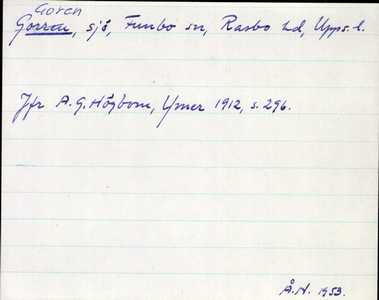 Goren
Gorren, sjö, Funbo sn, Rasbo hd, Upps. l.
Jfr A. G. Högbom, Ymer 1912, s. 296.
Å. N. 1953.